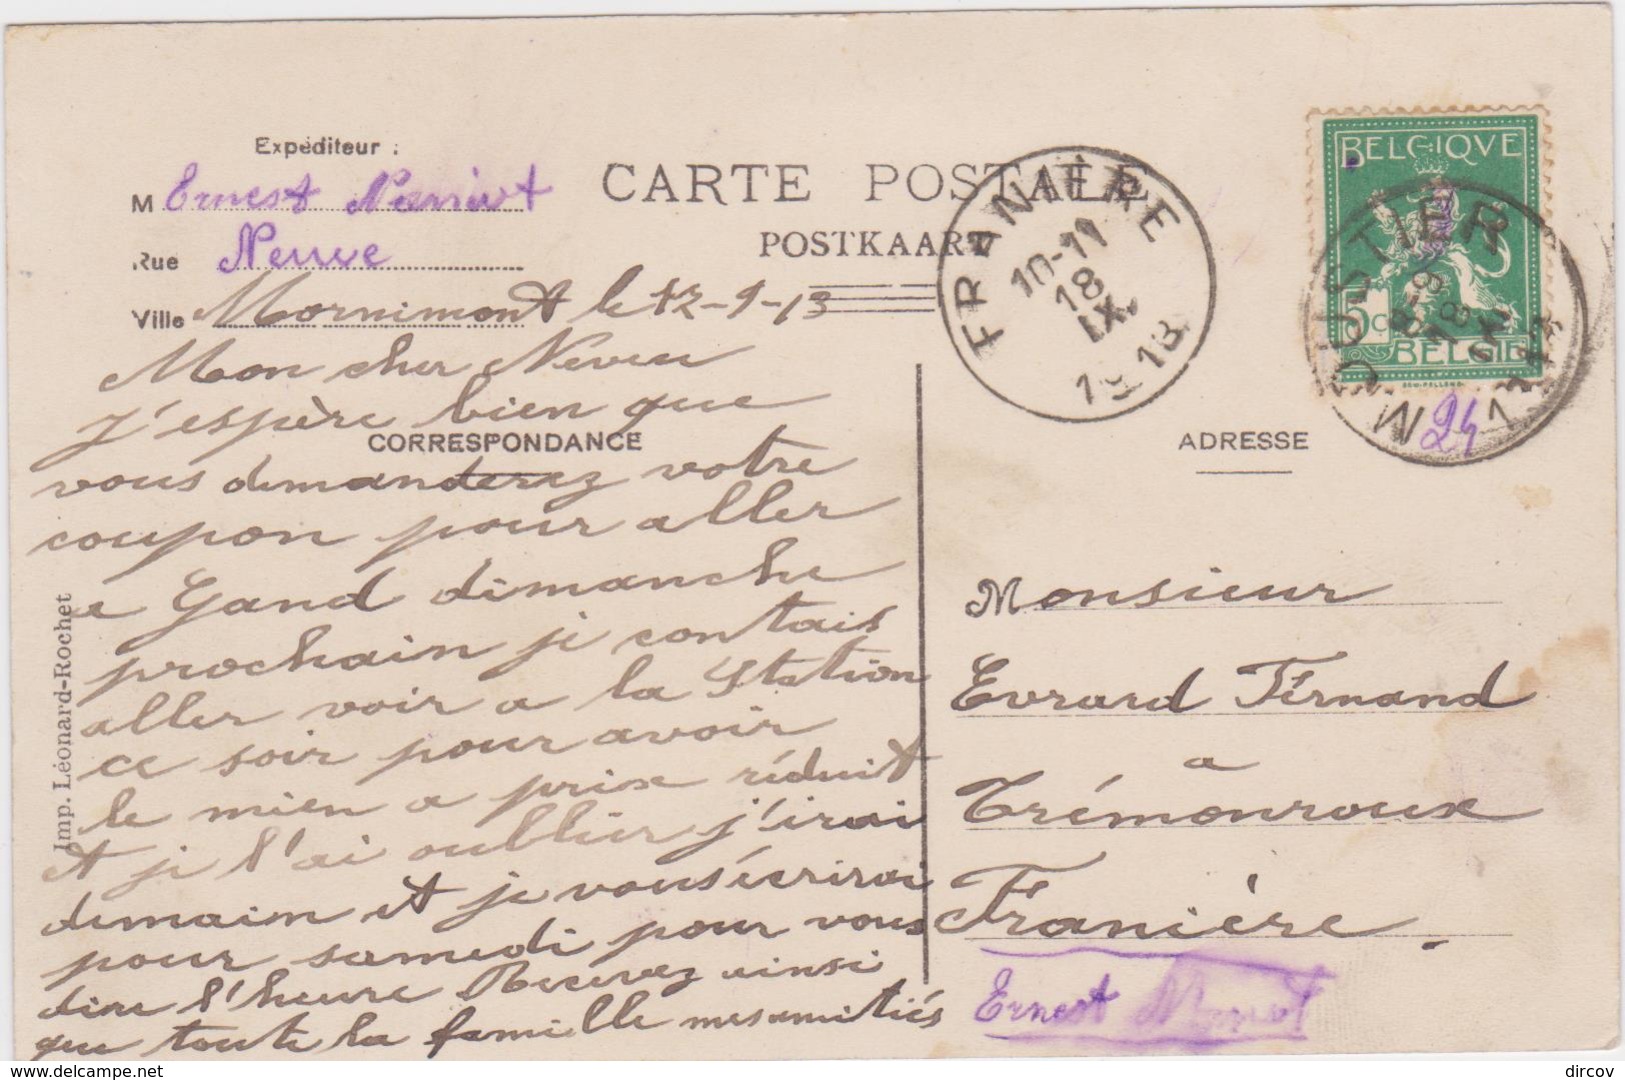 Expéditeur :
M Ernest
Rue Neuve
Ville Mornimont le 17-9-13
CARTE POSTALE
POSTKAART
FRANIÈRE
10-11
18
IX
1913
BELGIQVE
5c
BELGIE
MOUSTIER
8-9
18
IX
1913
24
Mon cher Neveu
j'espère bien que
CORRESPONDANCE
vous demanderez votre
coupon pour aller
a Gand dimanche
prochain je contais
aller voir a la Station
ce soir pour avoir
le mien a prix réduit
et je l'ai oublier j'irai
demain et je vous écrirai
pour samedi pour vous
dire l'heure Recevez ainsi
que toute la famille mes amitiés
Imp. Léonard-Rochet
ADRESSE
Monsieur
Evrard Fernand
a
Trémouroux
Franière.
Ernest
delcampe.net
dircov